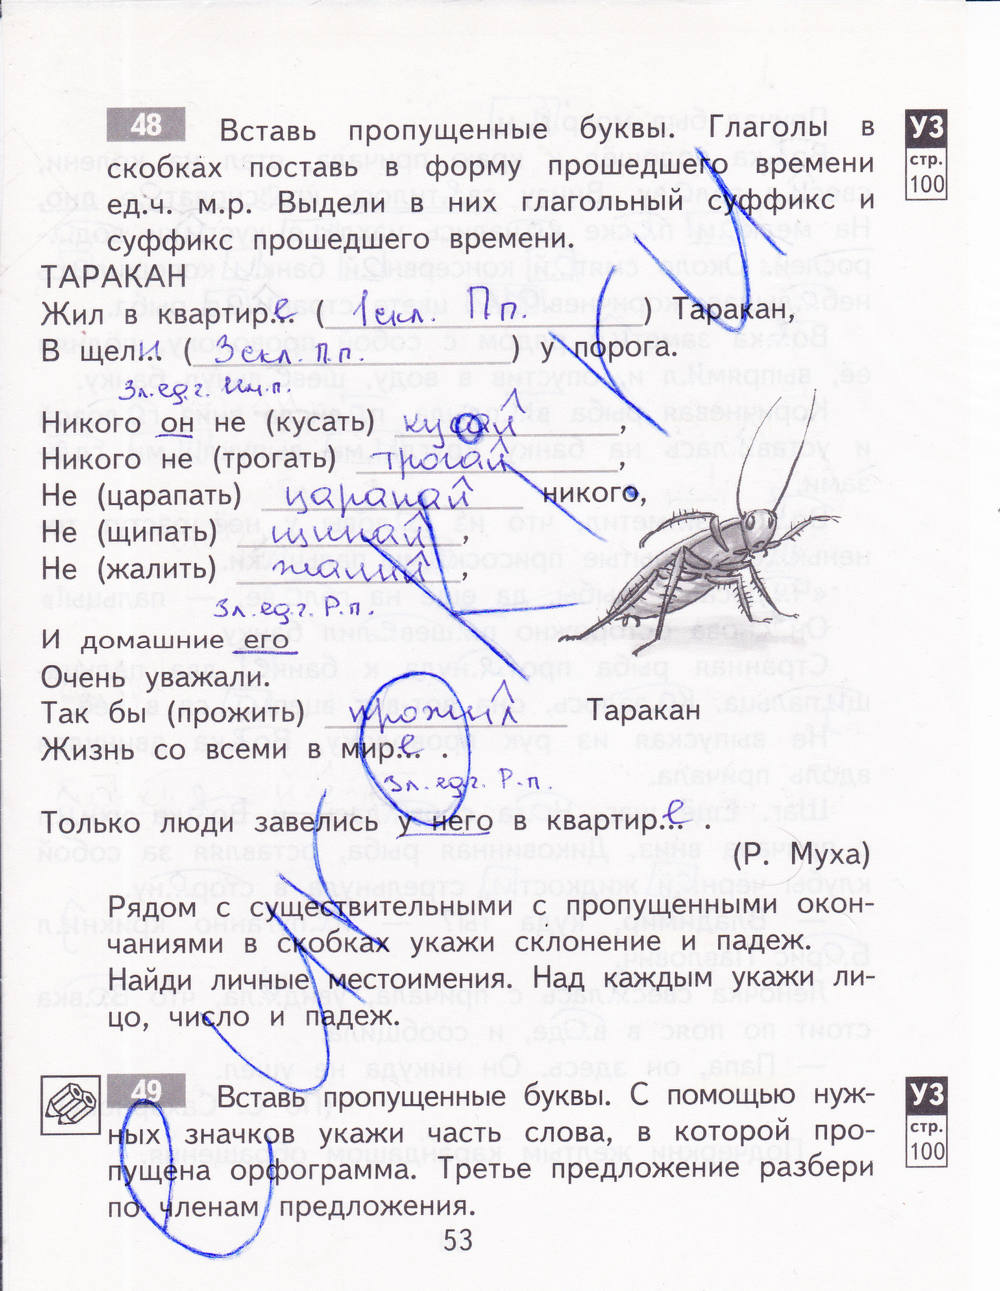 48 Вставь пропущенные буквы. Глаголы в
скобках поставь в форму прошедшего времени
ед.ч. м.р. Выдели в них глагольный суффикс и
суффикс прошедшего времени.
УЗ
стр.
100
ТАРАКАН
Жил в квартир..е (1скл. П.п.) Таракан,
В щели (3скл. п.п.) у порога.
3л.ед.ч. И.п.
Никого он не (кусать) кусал,
Никого не (трогать) трогал,
Не (царапать) царапал никого,
Не (щипать) щипал,
Не (жалить) жалил,
3л.ед.ч. Р.п.
И домашние его
Очень уважали.
Так бы (прожить) прожил Таракан
Жизнь со всеми в мир..е.
3л.ед.ч. Р.п.
Только люди завелись у него в квартир..е.
(Р. Муха)
Рядом с существительными с пропущенными окон-
чаниями в скобках укажи склонение и падеж.
Найди личные местоимения. Над каждым укажи ли-
цо, число и падеж.
49 Вставь пропущенные буквы. С помощью нуж-
ных значков укажи часть слова, в которой про-
пущена орфограмма. Третье предложение разбери
по членам предложения.
УЗ
стр.
100
53